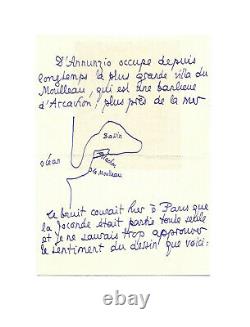 D'Annunzio occupe depuis
longtemps la plus grande villa du
Moulleau, qui est une banlieue
d'Arcachon, plus près de la mer
Bassin
Océan
Arcachon
Le Moulleau
Le bruit courait hier à Paris que
la Joconde était partie toute seule
et je ne saurais trop approuver
le sentiment du dessin que voici:
ebay